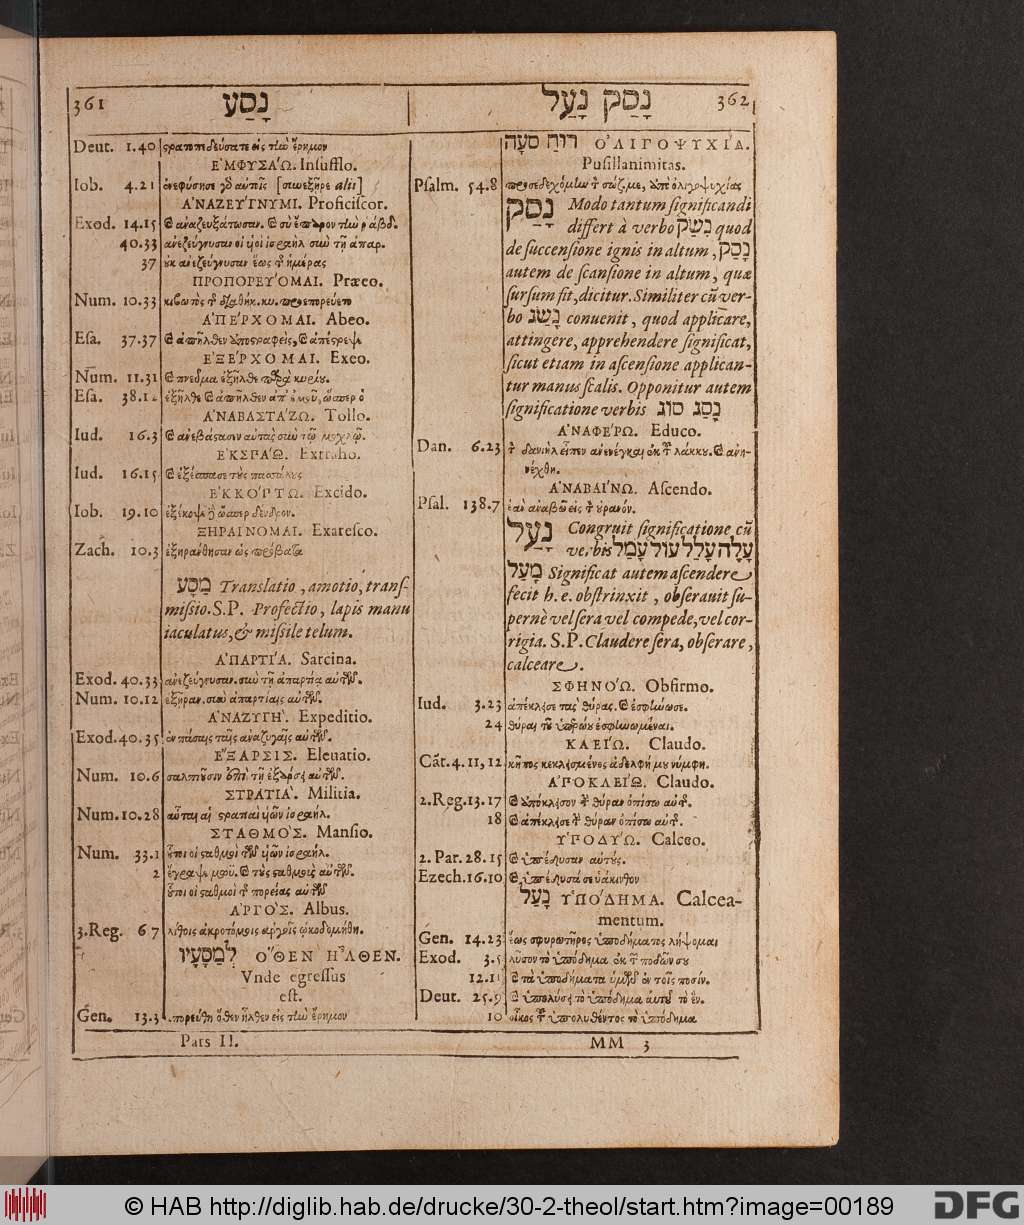 361 נָסַע
Deut. 1.40 στρατοπεδεύσατε εἰς τὴν ἔρημον
ἘΜΦΥΣΑΏ. Insufflo.
Iob. 4.21 ἐνεφύσησε γδ αὐτοῖς [συνεξῆρε alii]
ἈΝΑΖΕΎΓΝΥΜΙ. Proficiscor.
Exod. 14.15 Ϗ ἀναζευξάτωσαν. Ϗ σὺ ἔπαρον τὴν ῥάβδ.
40.33 ἀνεζεύγνυσαν οἱ υἱοὶ ἰσραὴλ σὺν τῇ ἀπαρ.
37 οὐκ ἀνεζεύγνυσαν ἕως τ ἡμέρας
ΠΡΟΠΟΡΕΎΟΜΑΙ. Præeo.
Num. 10.33 κιβωτὸς τ διαθήκ. κυ. προεπορεύετο
ἈΠΈΡΧΟΜΑΙ. Abeo.
Esa. 37.37 Ϗ ἀπῆλθεν ὑποστραφεὶς, Ϗ ἀπέστρεψε
ἘΞΈΡΧΟΜΑΙ. Exeo.
Num. 11.31 Ϗ πνεῦμα ἐξῆλθε παρὰ κυρίου.
Esa. 38.12 ἐξῆλθε Ϗ ἀπῆλθεν ἀπ' ἐμοῦ, ὥσπερ ὁ
ἈΝΑΒΑΣΤΆΖΩ. Tollo.
Iud. 16.3 Ϗ ἀνεβάστασεν αὐτὰς σὺν τῷ μοχλῷ.
ἘΚΣΠΆΩ. Extraho.
Iud. 16.15 Ϗ ἐξέσπασε τοὺς πασσάλους
ἘΚΚΌΠΤΩ. Excido.
Iob. 19.10 ἐξέκοψε ὥσπερ δένδρον.
ΞΗΡΑΊΝΟΜΑΙ. Exaresco.
Zach. 10.3 ἐξηράνθησαν ὡς πρόβατα
מַסַּע Translatio, amotio, trans-
missio. S.P. Profectio, lapis manu
iaculatus, & missile telum.
ἈΠΑΡΤΊΑ. Sarcina.
Exod. 40.33 ἀνεζεύγνυσαν. σὺν τῇ ἀπαρτίᾳ αὐτῶν.
Num. 10.12 ἐξῆραν. σὺν ἀπαρτίαις αὐτῶν.
ἈΝΑΖΥΓΉ. Expeditio.
Exod. 40.35 ἐν πάσαις ταῖς ἀναζυγαῖς αὐτῶν.
ἜΞΑΡΣΙΣ. Eleuatio.
Num. 10.6 σαλπιοῦσιν ἐπὶ τῇ ἐξάρσει αὐτῶν.
ΣΤΡΑΤΙΆ. Militia.
Num. 10.28 αὗται αἱ στρατιαὶ υἱῶν ἰσραήλ.
ΣΤΑΘΜΌΣ. Mansio.
Num. 33.1 οὗτοι οἱ σταθμοὶ τῶν υἱῶν ἰσραήλ.
2 ἔγραψε μωϋ. Ϗ τοὺς σταθμοὺς αὐτῶν.
οὗτοι οἱ σταθμοὶ τ πορείας αὐτῶν
ἈΡΓΌΣ. Albus.
3. Reg. 6 7 λίθοις ἀκροτόμοις ἀργοῖς ᾠκοδομήθη.
לְמַסָּעָיו ὍΘΕΝ ἮΛΘΕΝ.
Vnde egressus
est.
Gen. 13.3 ἐπορεύθη ὅθεν ἦλθεν εἰς τὴν ἔρημον
Pars II.
נָסַק נָעַל 362
רוּחַ סֹעָה ὈΛΙΓΟΨΥΧΊΑ.
Pusillanimitas.
Psalm. 54.8 προσεδεχόμην τ σώζ. με, ἀπὸ ὀλιγοψυχίας
נָסַק Modo tantum significandi
differt à verbo נָשַׂק quod
de succensione ignis in altum, נָסַק
autem de scansione in altum, quæ
sursum fit, dicitur. Similiter cū ver-
bo נָשַׂג conuenit, quod applicare,
attingere, apprehendere significat,
sicut etiam in ascensione applican-
tur manus scalis. Opponitur autem
significatione verbis נָסַג סוּג
ἈΝΑΦΈΡΩ. Educo.
Dan. 6.23 τ δανιὴλ εἶπεν ἀνενέγκαι ἐκ τ λάκκου. Ϗ ἀνη-
νέχθη.
ἈΝΑΒΑΊΝΩ. Ascendo.
Psal. 138.7 ἐὰν ἀναβῶ εἰς τ οὐρανόν.
נָעַל Congruit significatione cū
verbis עָלָה עָלַל עוּל עָמַל
מָעַל Significat autem ascendere
fecit h. e. obstrinxit, obserauit su-
pernè vel sera vel compede, vel cor-
rigia. S.P. Claudere sera, obserare,
calceare.
ΣΦΗΝΌΩ. Obfirmo.
Iud. 3.23 ἀπέκλεισε τὰς θύρας. Ϗ ἐσφήνωσε.
24 θύραι τοῦ ὑπερῴου ἐσφηνωμέναι.
ΚΛΕΊΩ. Claudo.
Cāt. 4.11, 12 κῆπος κεκλεισμένος ἀδελφή μου νύμφη.
ἈΠΟΚΛΕΊΩ. Claudo.
2. Reg. 13.17 Ϗ ἀπόκλεισον τ θύραν ὀπίσω αὐτ.
18 Ϗ ἀπέκλεισε τ θύραν ὀπίσω αὐτ.
ὙΠΟΔΎΩ. Calceo.
2. Par. 28.15 Ϗ ὑπέδυσαν αὐτούς.
Ezech. 16.10 Ϗ ὑπέδυσά σε ὑάκινθον
נַעַל ὙΠΌΔΗΜΑ. Calcea-
mentum.
Gen. 14.23 ἕως σφυρωτῆρος ὑποδήματος λήψομαι
Exod. 3.5 λῦσον τὸ ὑπόδημα ἐκ τ ποδῶν σου
12.11 Ϗ τὰ ὑποδήματα ὑμῶν ἐν τοῖς ποσίν.
Deut. 25.9 Ϗ ὑπολύσει τὸ ὑπόδημα αὐτοῦ τὸ ἕν.
10 οἶκος τ ὑπολυθέντος τὸ ὑπόδημα
MM 3
© HAB http://diglib.hab.de/drucke/30-2-theol/start.htm?image=00189
DFG